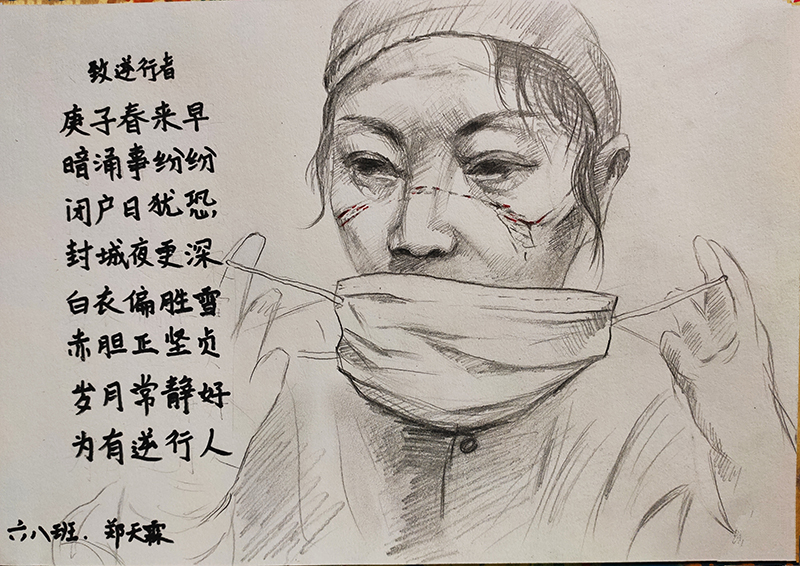 致逆行者
庚子春来早
暗涌事纷纷
闭户日犹恐,
封城夜更深
白衣偏胜雪
赤胆正坚贞
岁月常静好
为有逆行人
六八班. 郑天霖